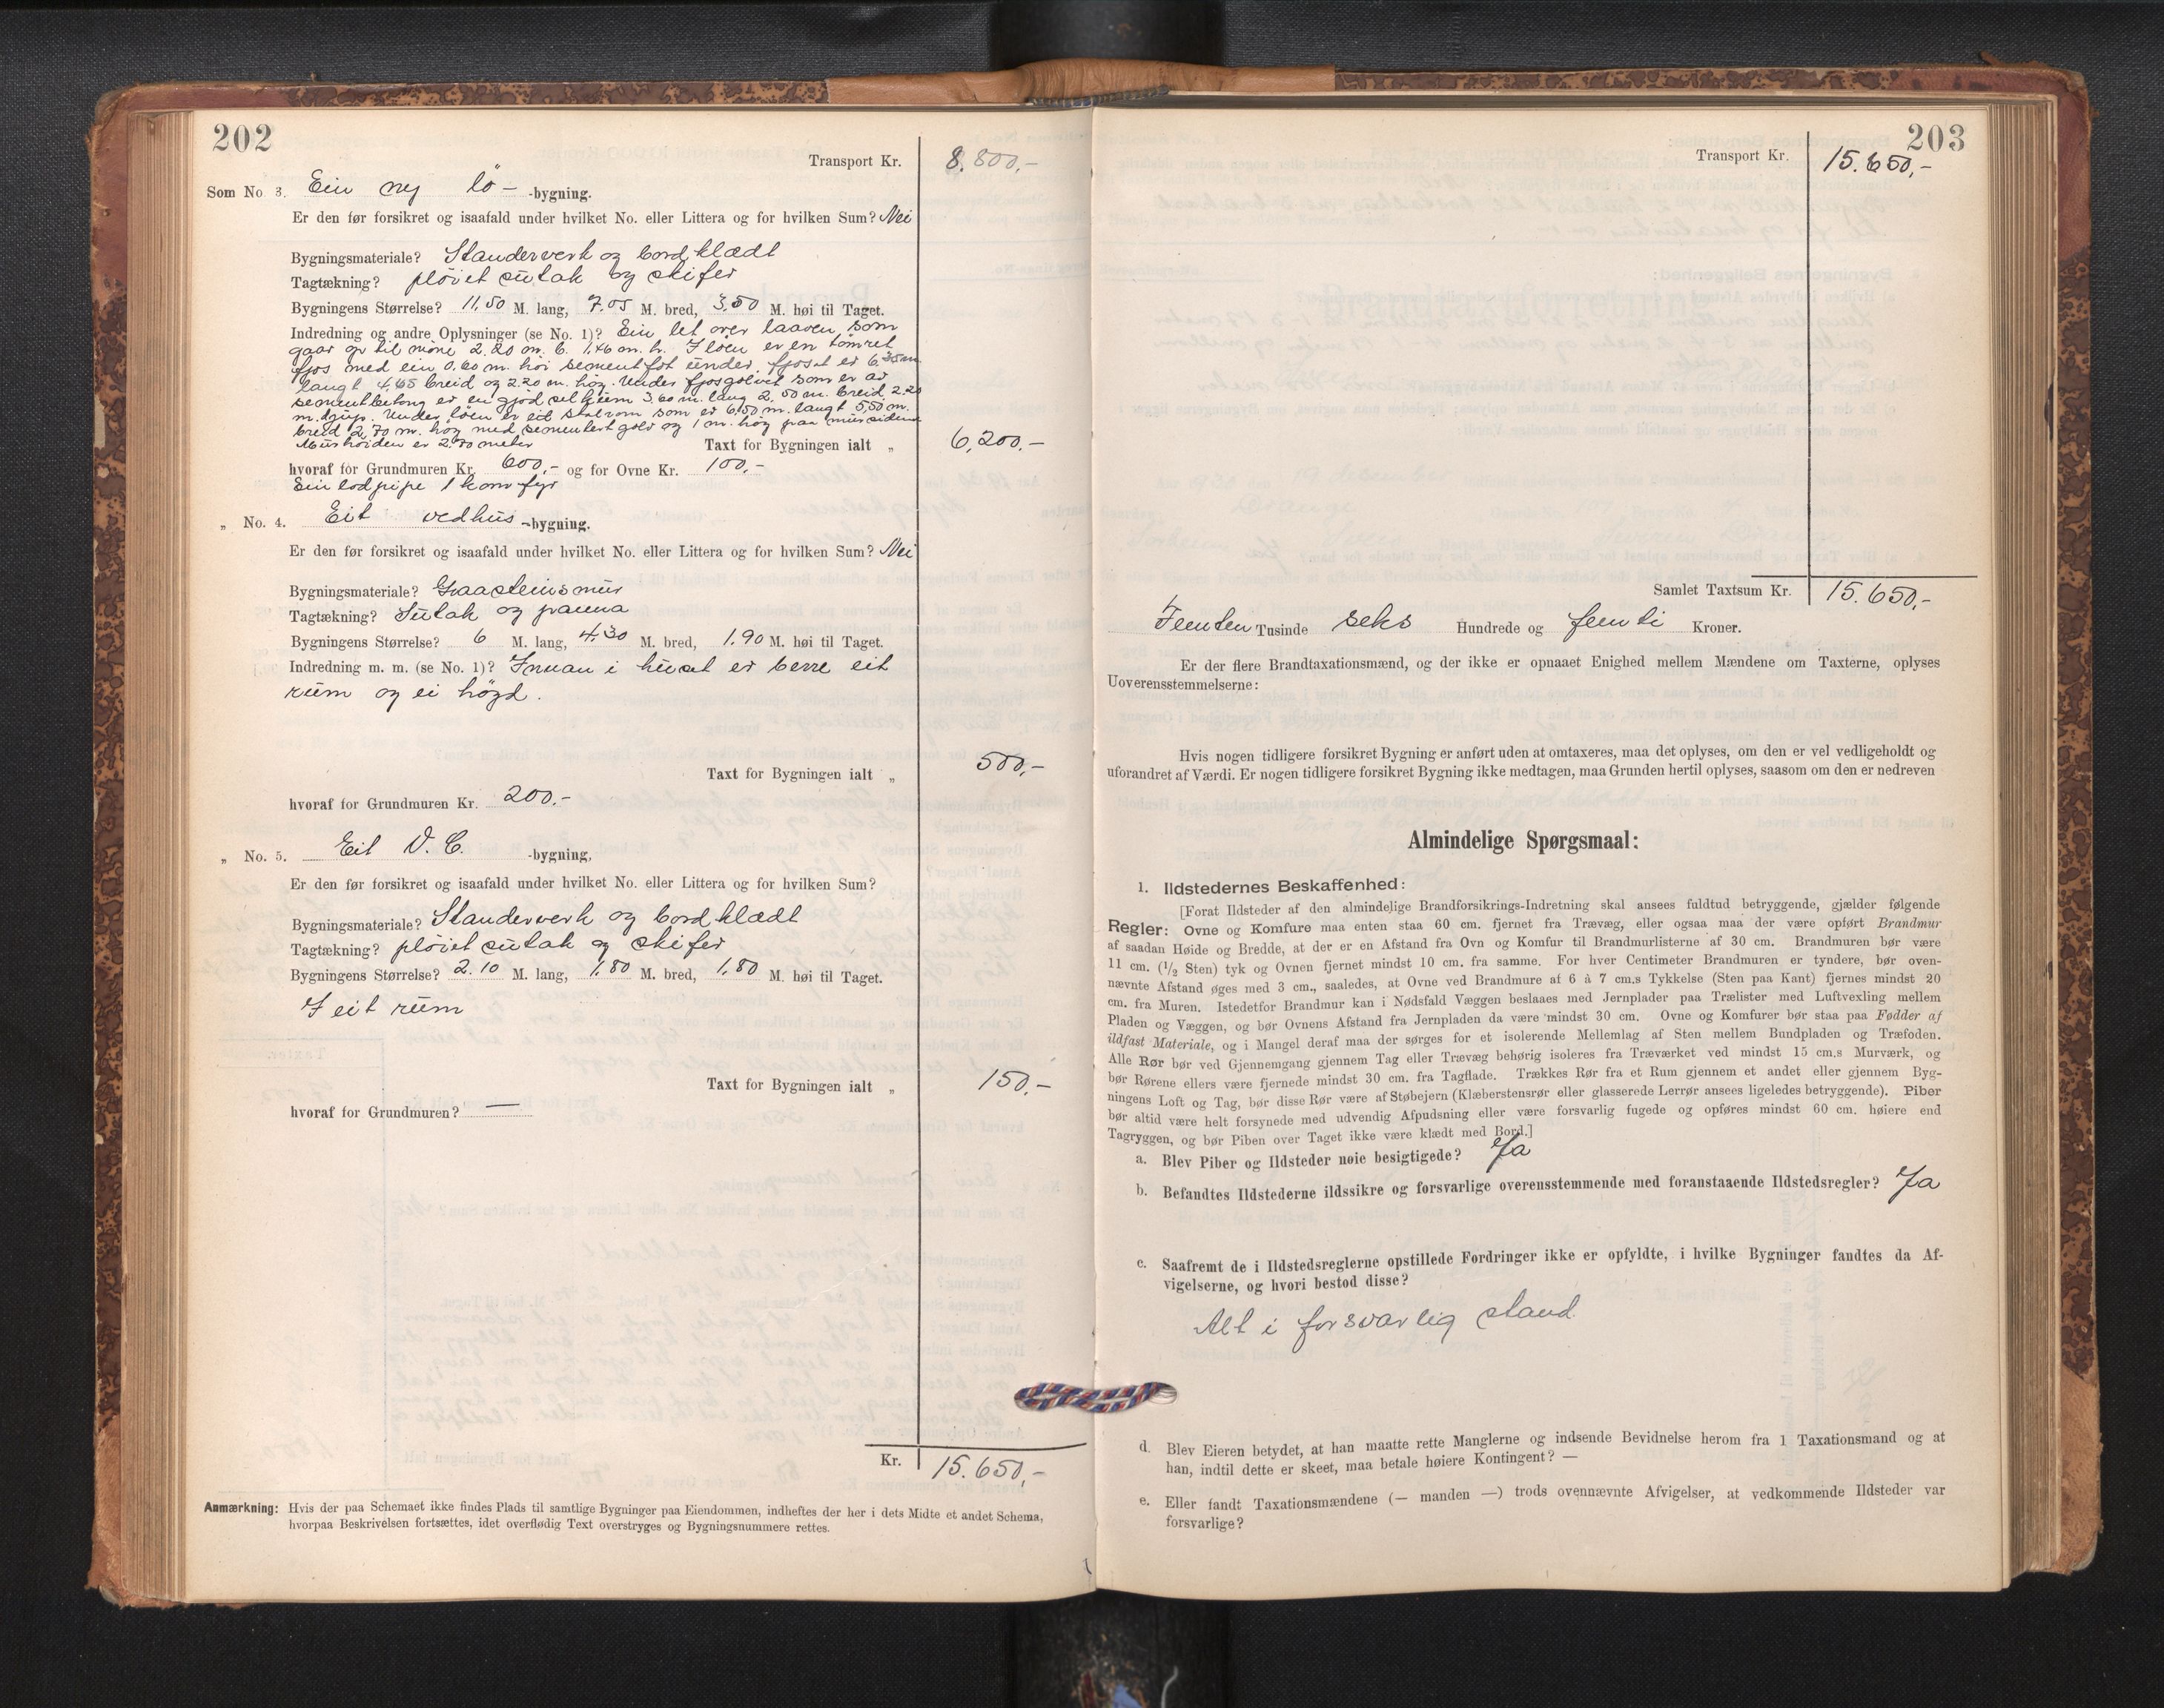 202
Transport Kr. 8.800,-
Som No 3. Ein ny lö- -bygning.
Er den før forsikret og isaafald under hvilket No. eller Littera og for hvilken Sum? Nei
Bygningsmateriale? Standerverk og bordklædt
Tagtækning? plöiet sutak og skifer
Bygningens Størrelse? 11,50 M. lang, 7.05 M. bred, 3,50 M. høi til Taget.
Indredning og andre Oplysninger (se No. 1)? Ein let over laaven som
gaar op til möne 2.20 m. b. 1,46 m. h. I löen er en tömret
fjös med ein 0.60 m. höi sementfot under, fjöset er 6.35 m
langt 4,65 breid og 2.20 m. høg. Under fjösgolvet som er av
sementbetong er en gjödselkjum 3,60 m. lang 2,50 m. breid, 2.20
m. djup. Under löen er eid stalrom som er 6,50 m. langt 5,50 m.
breid 2,70 m. høg med sementert golv og 1 m. høg paa mursidene
Murhöiden er 2.70 meter
Taxt for Bygningen ialt „ 6,200,-
hvoraf for Grundmuren Kr. 600,- og for Ovne Kr. 100,-
Ein lodpipe 1 komfyr
„ No. 4. Eit vedhus -bygning.
Er den før forsikret og isaafald under hvilket No. eller Littera og for hvilken Sum? Nei
Bygningsmateriale? Graasteinsmur
Tagtækning? Sutak og panna
Bygningens Størrelse? 6 M. lang, 4.30 M. bred, 1.90 M. høi til Taget.
Indredning m. m. (se No. 1)? Innan i huset er berre eit
rum og ei högd.
Taxt for Bygningen ialt „ 500,-
hvoraf for Grundmuren Kr. 200.-
„ No. 5. Eit V. C. -bygning,
Er den før forsikret og isaafald under hvilket No. eller Littera og for hvilken Sum?
Bygningsmateriale? Standerverk og bordklædt
Tagtækning? plöiet sutak og skifer
Bygningens Størrelse? 2.10 M. lang, 1,80 M. bred, 1,80 M. høi til Taget.
I eit rum
Taxt for Bygningen ialt „ 150,-
hvoraf for Grundmuren? —
Kr. 15.650,-
Anmærkning: Hvis der paa Schemaet ikke findes Plads til samtlige Bygninger paa Eiendommen, indheftes der her i dets Midte et andet Schema,
hvorpaa Beskrivelsen fortsættes, idet overflødig Text overstryges og Bygningsnummere rettes.
203
Transport Kr. 15.650,-
Samlet Taxtsum Kr. 15.650,-
Femten Tusinde seks Hundrede og femti Kroner.
Er der flere Brandtaxationsmænd, og der ikke er opnaaet Enighed mellem Mændene om Taxterne, oplyses
Uoverensstemmelserne:
Hvis nogen tidligere forsikret Bygning er anført uden at omtaxeres, maa det oplyses, om den er vel vedligeholdt og
uforandret af Værdi. Er nogen tidligere forsikret Bygning ikke medtagen, maa Grunden hertil oplyses, saasom om den er nedreven
Almindelige Spørgsmaal:
1. Ildstedernes Beskaffenhed:
[Forat Ildsteder af den almindelige Brandforsikrings-Indretning skal ansees fuldtud betryggende, gjælder følgende
Regler: Ovne og Komfure maa enten staa 60 cm. fjernet fra Trævæg, eller ogsaa maa der være opført Brandmur
af saadan Høide og Bredde, at der er en Afstand fra Ovn og Komfur til Brandmurlisterne af 30 cm. Brandmuren bør være
11 cm. (1/2 Sten) tyk og Ovnen fjernet mindst 10 cm. fra samme. For hver Centimeter Brandmuren er tyndere, bør oven-
nævnte Afstand øges med 3 cm., saaledes, at Ovne ved Brandmure af 6 à 7 cm.s Tykkelse (Sten paa Kant) fjernes mindst 20
cm. fra Muren. Istedetfor Brandmur kan i Nødsfald Væggen beslaaes med Jernplader paa Trælister med Luftvexling mellem
Pladen og Væggen, og bør Ovnens Afstand fra Jernpladen da være mindst 30 cm. Ovne og Komfurer bør staa paa Fødder af
ildfast Materiale, og i Mangel deraf maa der sørges for et isolerende Mellemlag af Sten mellem Bundpladen og Træfoden.
Alle Rør bør ved Gjennemgang gjennem Tag eller Trævæg behørig isoleres fra Træværket ved mindst 15 cm.s Murværk, og
bør Rørene ellers være fjernede mindst 30 cm. fra Tagflade. Trækkes Rør fra et Rum gjennem et andet eller gjennem Byg-
ningens Loft og Tag, bør disse Rør være af Støbejern (Klæberstensrør eller glasserede Lerrør ansees ligeledes betryggende). Piber
bør altid være helt forsynede med udvendig Afpudsning eller være forsvarlig fugede og opføres mindst 60 cm. høiere end
Tagryggen, og bør Piben over Taget ikke være klædt med Bord.]
a. Blev Piber og Ildsteder nøie besigtigede? Ja
b. Befandtes Ildstederne ildssikre og forsvarlige overensstemmende med foranstaaende Ildstedsregler? Ja
c. Saafremt de i Ildstedsreglerne opstillede Fordringer ikke er opfyldte, i hvilke Bygninger fandtes da Af-
vigelserne, og hvori bestod disse?
Alt i forsvarlig stand.
d. Blev Eieren betydet, at han maatte rette Manglerne og indsende Bevidnelse herom fra 1 Taxationsmand og at
han, indtil dette er skeet, maa betale høiere Kontingent? —
e. Eller fandt Taxationsmændene (— manden —) trods ovennævnte Afvigelser, at vedkommende Ildsteder var
forsvarlige?